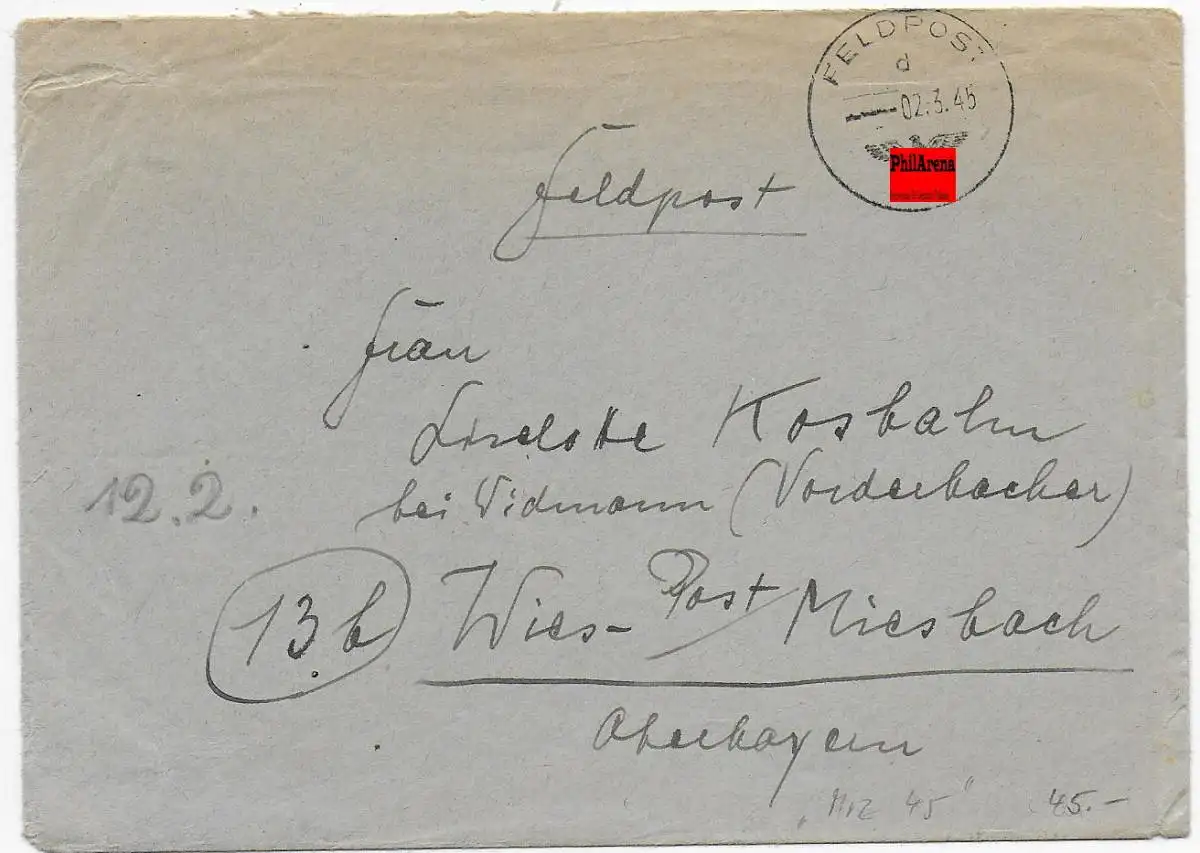 FELDPOST
d
02.3.45
PhilArena
Feldpost
Frau
Liselotte Kosbahn
bei Widmann (Vorderbacher)
12.2.
13b Wies- Post Miesbach
Oberbayern
"Mrz 45" 45.-